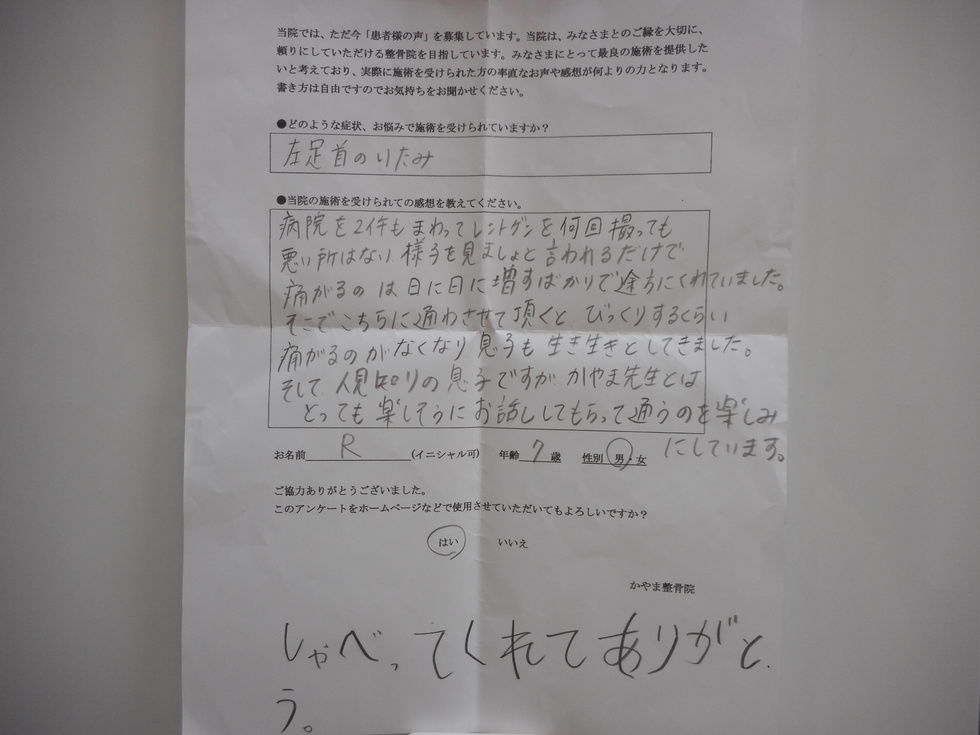 当院では、ただ今「患者様の声」を募集しています。当院は、みなさまとのご縁を大切に、
頼りにしていただける整骨院を目指しています。みなさまにとって最良の施術を提供した
いと考えており、実際に施術を受けられた方の率直なお声や感想が何よりの力となります。
書き方は自由ですのでお気持ちをお聞かせください。
●どのような症状、お悩みで施術を受けられていますか?
左足首のいたみ
●当院の施術を受けられての感想を教えてください。
病院を2件もまわってレントゲンを何回撮っても
悪い所はない、様子を見ましょと言われるだけで
痛がるのは日に日に増すばかりで途方にくれていました。
そこでこちらに通わさせて頂くとびっくりするくらい
痛がるのがなくなり息子も生き生きとしてきました。
そして人見知りの息子ですがかやま先生とは
とっても楽しそうにお話ししてもらって通うのを楽しみ
にしています。
お名前 R (イニシャル可) 年齢 7 歳 性別 男・女
ご協力ありがとうございました。
このアンケートをホームページなどで使用させていただいてもよろしいですか?
はい いいえ
かやま整骨院
しゃべってくれてありがと
う。